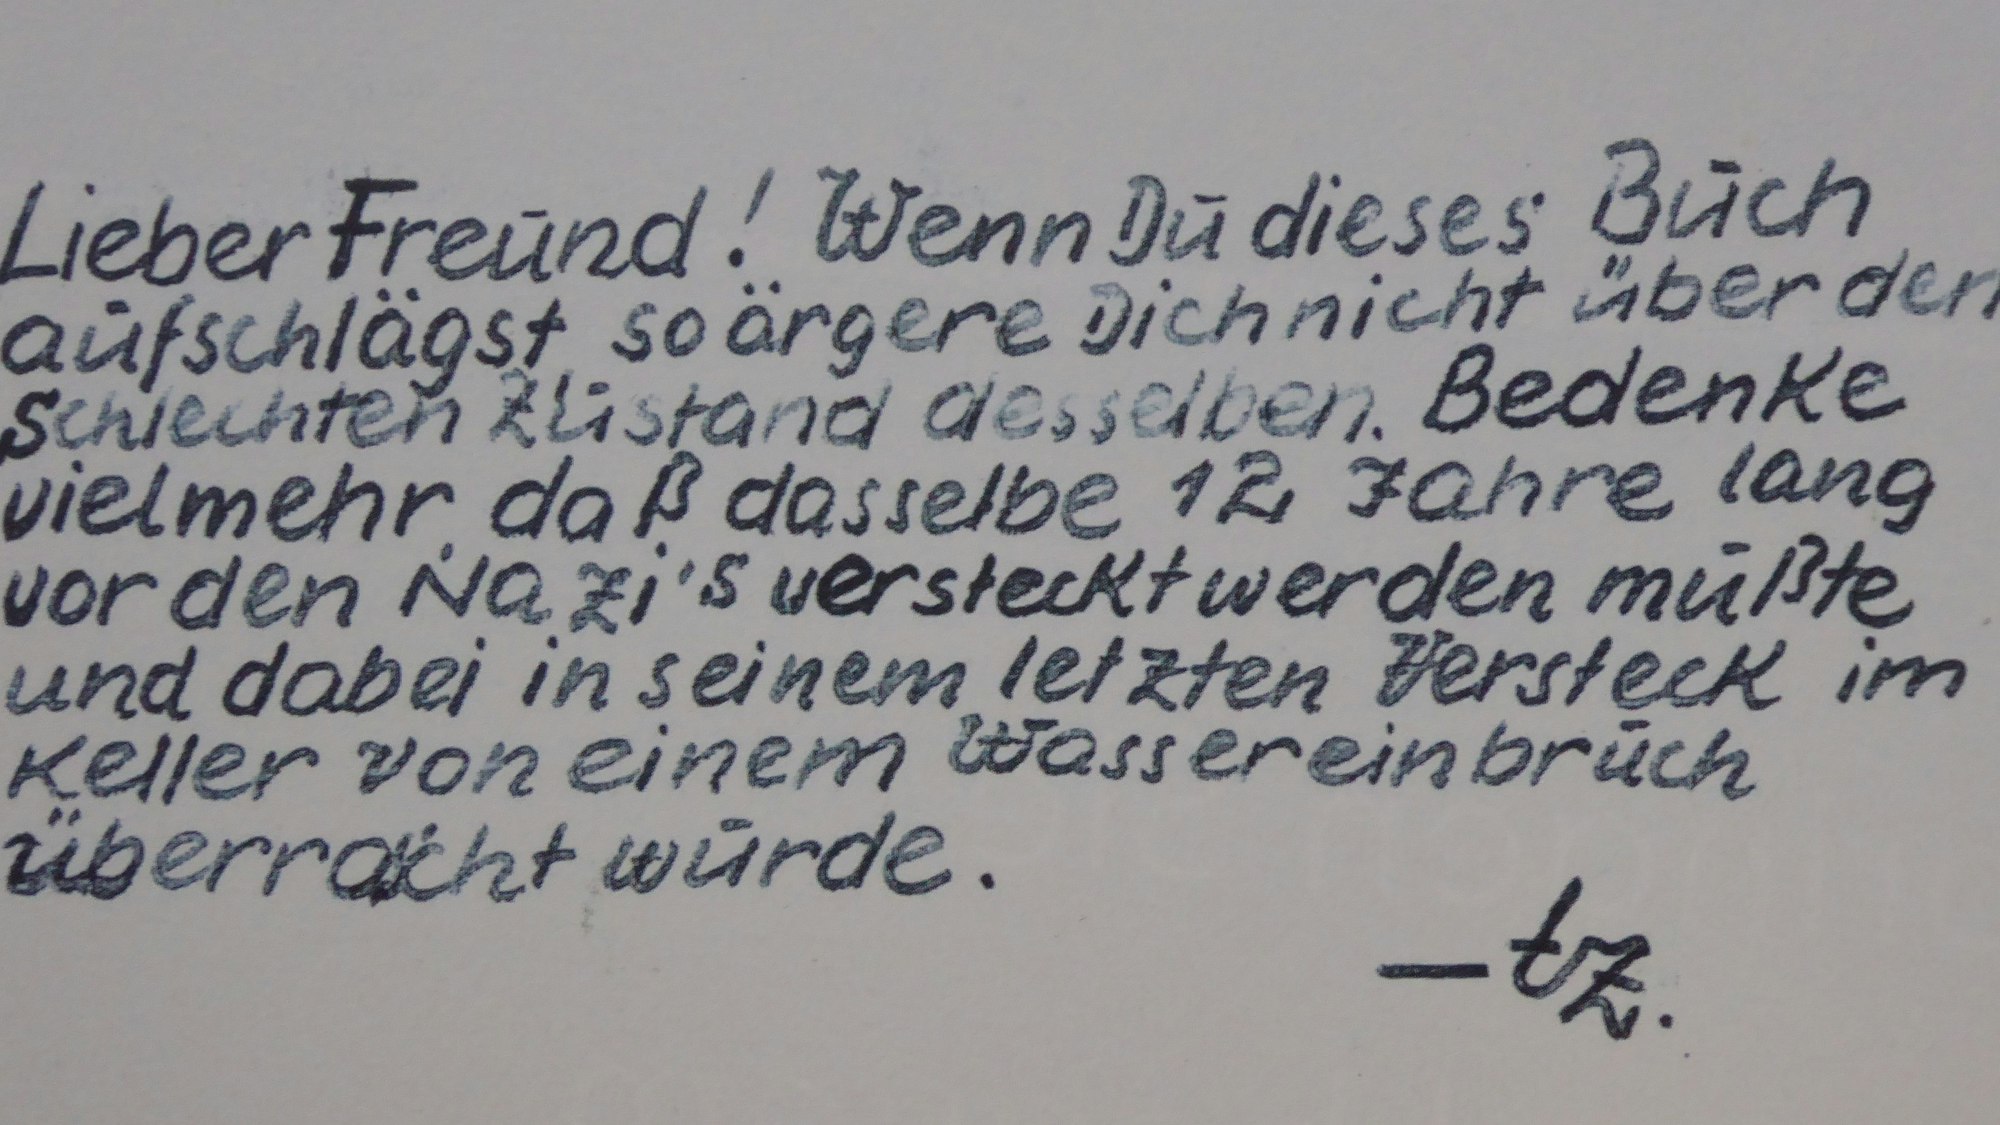 Lieber Freund! Wenn Du dieses Buch
aufschlägst so ärgere Dich nicht über den
schlechten Zustand desselben. Bedenke
vielmehr daß dasselbe 12 Jahre lang
vor den Nazi's versteckt werden mußte
und dabei in seinem letzten Versteck im
Keller von einem Wassereinbruch
überracht wurde.
— tz.